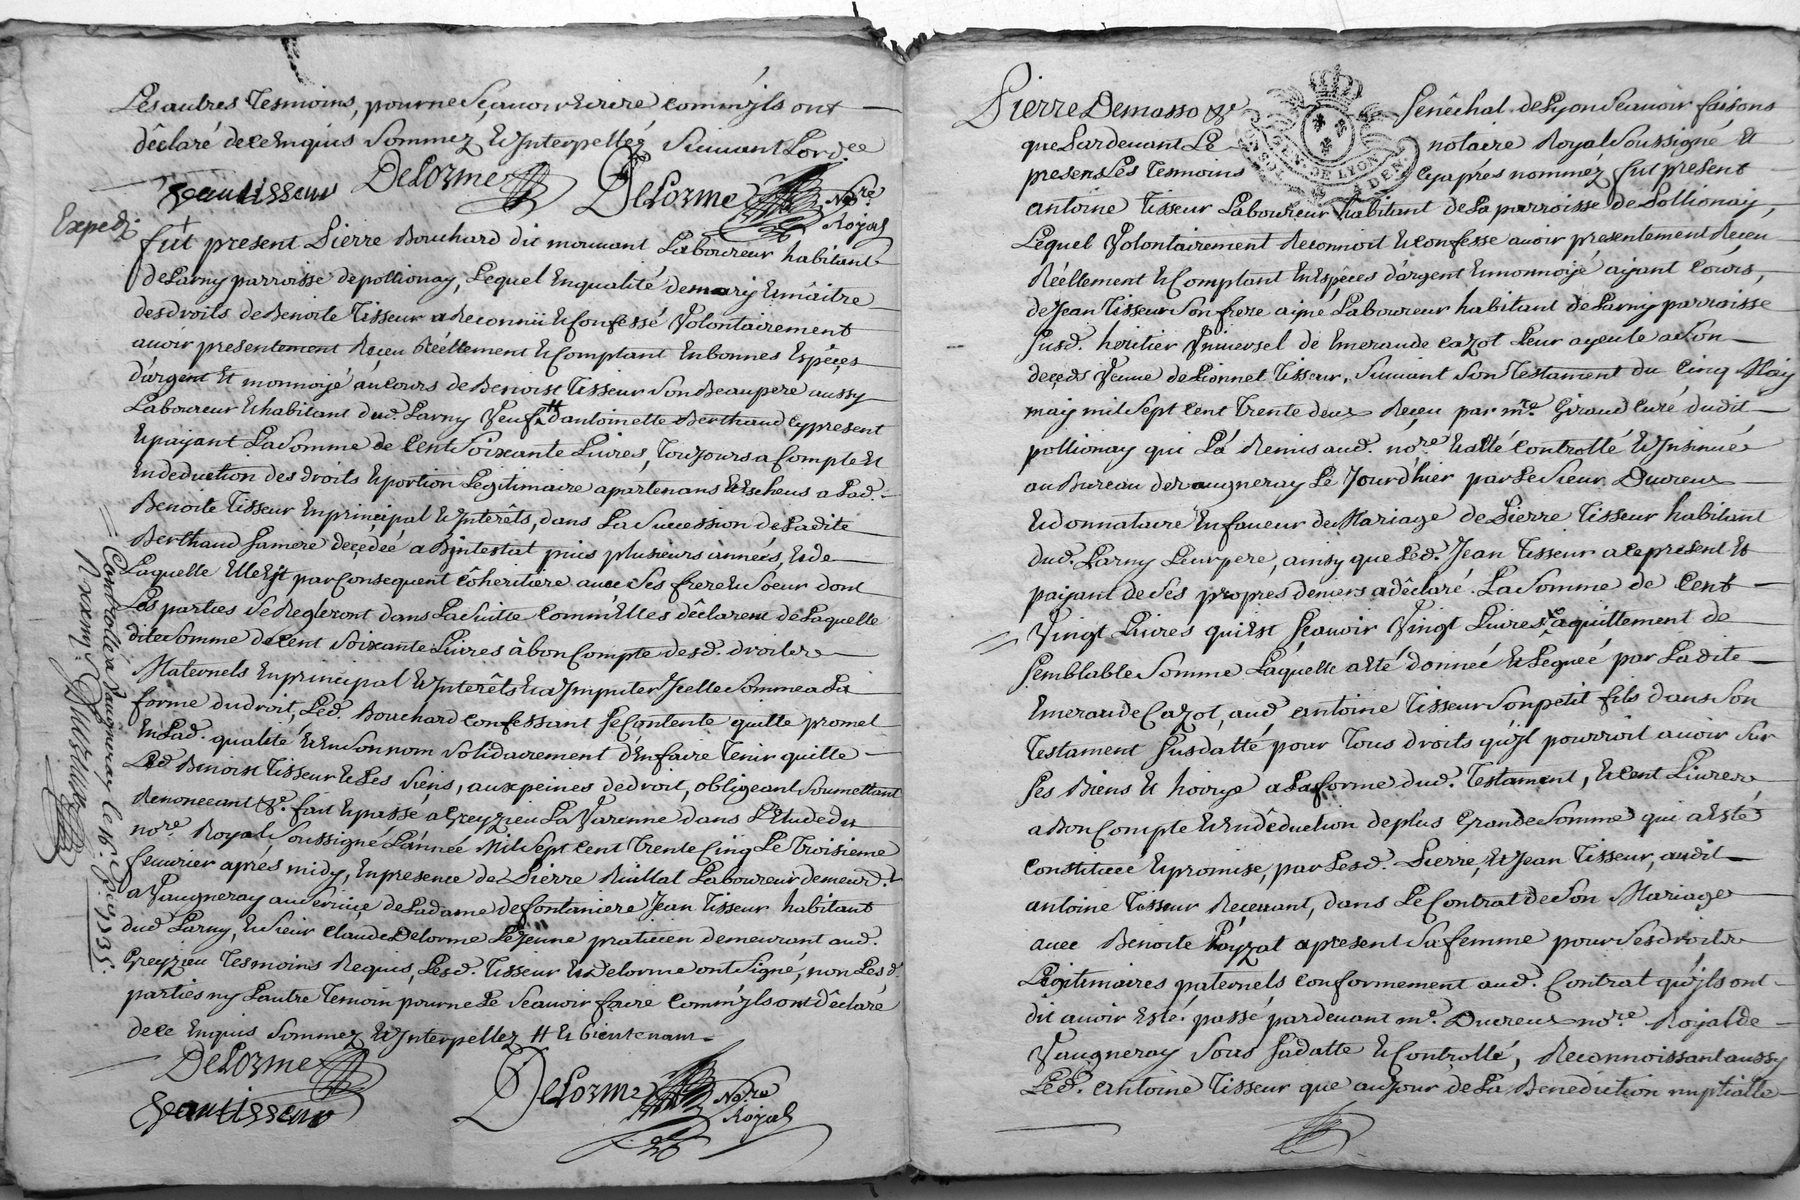 Les autres tesmoins, pour ne sçavoir ecrire comm'jls ont
déclaré de ce enquis Sommez et Interpellés Suivant Lord.ce
jean tisseur Delorme Delorme No.re Royal
Exped.
fut present Pierre Bouchard dit mouvant Laboureur habitant
de Larny parroisse de pollionay, Lequel En qualité de mary et mâitre
des droits de Benoite Tisseur a Reconnü et Confessé Volontairement
avoir presentement Reçeu Réellement et Comptant En bonnes Espéçes
d'argent et monnoijé au Cours de Benoist Tisseur Son Beaupere aussy
Laboureur et habitant dud. Larny Veuf # d'antoinette Berthaud cy present
et paijant La Somme de Cent Soixante Livres, toujours a Compte et
En deduction des droits et portion Legitimaire apartenans et Escheus a Lad.
Benoite Tisseur En principal et Interêts, dans La Succession de Ladite
Berthaud Sa mere deçedeé abjntestat puis plusieurs années, et de
Laquelle Elle Est par Consequent côheritiere avec Ses frere et Soeur dont
Les parties Se Regleront dans La Suitte Comm'Elles déclarent de Laquelle
dite Somme de Cent Soixante Livres à bon Compte desd. droits
Maternels En principal et Interêts et a Jmputer Jcelle Somme a La
forme du droit, Led. Bouchard Confessant Se Contente quitte promet
En Lad. qualité et En Son nom Solidairement d'En faire tenir quitte
Led. Benoist Tisseur et Les Siens, aux peines de droit, obligeant Soumettant
Renonceant &c. fait et passé a Greyzieu La Varenne dans L'Etude du
no.re Royal Soussigné L'année Mil Sept Cent Trente Cinq Le Troisieme
fevrier aprés midy, En presence de Pierre Rivillat Laboureur demeur.t
a Vaugneray au Service de La dame de fontaniere Jean Tisseur habitant
dud. Larny, et Sieur Claude Delorme Le Jeune praticien demeurant aud.
Greyzieu Tesmoins Requis, Lesd. Tisseur et Delorme ont Signé, non Lesd.
parties ny Lautre Temoin pour ne Le Sçavoir faire Comm'jls ont déclaré
de ce Enquis Sommez et Interpellez # et bientenant.
Delorme Delorme No.re Royal
jean tisseur
Controllé a Vaugneray le 16.
Pierre Demasso &c Senêchal de Lyon Sçavoir faisons
que Pardevant Le notaire Royal Soussigné et
presens Les Tesmoins cy aprés nommez fut present
antoine Tisseur Laboureur habitant de La parroisse de Pollionay,
Lequel Volontairement Reconnoit et Confesse avoir presentement Reçeu
Réellement et Comptant En Espéçes d'argent et monnoijé aijant Cours,
de Jean Tisseur Son frere ainé Laboureur habitant de Larny parroisse
Susd. heritier Vniversel de Emeraude Cazot Leur ayeule a Son
deçeds Veuve de Pionnet Tisseur, Suivant Son Testament du Cinq May
may mil Sept Cent Trente deux Reçeu par m.re Giraud Curé dudit
pollionay qui L'a Remis aud. no.re et atté Controllé et Jnsinué
au Bureau de Vaugneray Le Jourdhier par Le Sieur Ducreux
et donnataire En faveur de Mariage de Pierre Tisseur habitant
dud. Larny Leur pere, ainsy que Led. Jean Tisseur a Ce present et
paijant de Ses propres deniers a déclaré. La Somme de Cent
Vingt Livres qui Est Sçavoir Vingt Livres En aquittement de
Semblable Somme Laquelle a Eté donneé et Legueé par Ladite
Emeraude Cazot, aud. antoine Tisseur Son petit fils dans Son
Testament Susdatté pour Tous droits qu'jl pourroit avoir Sur
Ses Biens et hoirye a La forme dud. Testament, et Cent Livres
a Bon Compte et En dêduction de plus Grande Somme qui a Esté
Constitueé et promise, par Lesd. Pierre, et Jean Tisseur, audit
antoine Tisseur Reçevant, dans Le Contrat de Son Mariage
avec Benoite Payzat a present Sa femme pour Ses droits
Legitimaires paternels Conformement aud. Contrat qu'jls ont
dit avoir Esté passé pardevant m.e Ducreux no.re Royal de
Vaugneray Sous Sa datte et Controllé, Reconnoissant aussy
Led. antoine Tisseur que au jour de La Benediction nuptialle